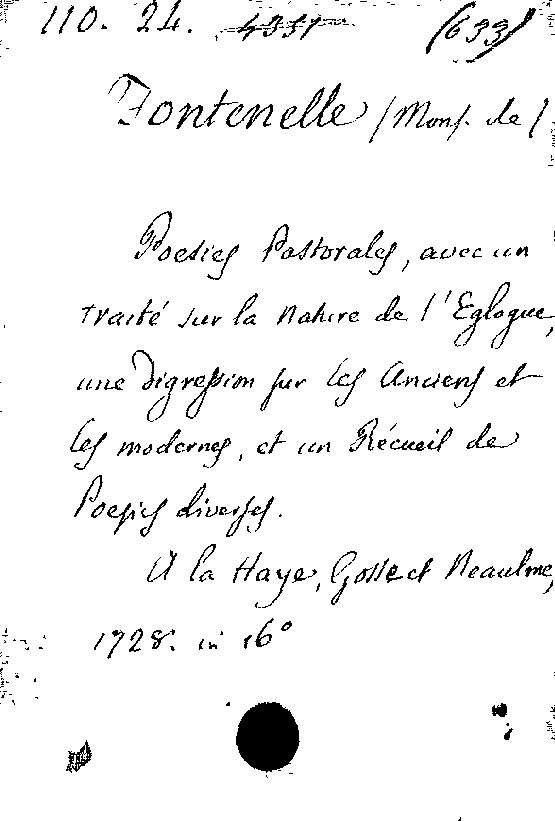 110. 24. 4331 (633)
Fontenelle /Mons. de/
Poesies Pastorales, avec un
traité sur la Nature de l'Eglogue,
une Digression sur les Anciens et
les modernes, et un Récueil de
Poesies diverses.
A la Haye, Gosse et Neaulme,
1728. in 16°